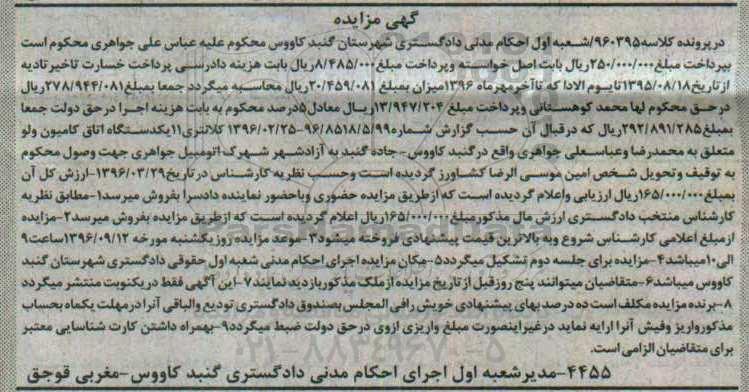 گهی مزایده
در پرونده کلاسه ۹۶۰۳۹۵/شعبه اول احکام مدنی دادگستری شهرستان گنبد کاووس محکوم علیه عباس علی جواهری محکوم است
بپرداخت مبلغ ۲۵۰/۰۰۰/۰۰۰ریال بابت اصل خواسته وپرداخت مبلغ ۸/۴۸۵/۰۰۰ریال بابت هزینه دادرسی پرداخت خسارت تاخیر تادیه
از تاریخ ۱۳۹۵/۰۸/۱۸تایوم الادا که تاآخر مهرماه ۱۳۹۶میزان بمبلغ ۲۰/۴۵۹/۰۸۱ریال محاسبه میگردد جمعا بمبلغ ۲۷۸/۹۴۴/۰۸۱ریال
درحق محکوم لها محمد کوهستانی وپرداخت مبلغ ۱۳/۹۴۷/۲۰۴ریال معادل۵درصد محکوم به بابت هزینه اجرا درحق دولت جمعا
بمبلغ ۲۹۲/۸۹۱/۲۸۵ریال که درقبال آن حسب گزارش شماره ۹۶/۸۵۱۸/۵/۹۹-۱۳۹۶/۰۲/۲۵ کلانتری۱۱یکدستگاه اتاق کامیون ولو
متعلق به محمدرضا وعباسعلی جواهری واقع درگنبد کاووس-جاده گنبد به آزادشهر شهرک اتومبیل جواهری جهت وصول محکوم
به توقیف وتحویل شخص امین موسی الرضا کشاورز گردیده است وحسب نظریه کارشناس درتاریخ ۱۳۹۶/۰۳/۲۹-ارزش کل آن
بمبلغ ۱۶۵/۰۰۰/۰۰۰ریال ارزیابی واعلام گردیده است که ازطریق مزایده حضوری وباحضور نماینده دادسرا بفروش میرسد۱-مطابق نظریه
کارشناس منتخب دادگستری ارزش مال مذکورمبلغ ۱۶۵/۰۰۰/۰۰۰ریال اعلام گردیده است که ازطریق مزایده بفروش میرسد۲-مزایده
ازمبلغ اعلامی کارشناس شروع وبه بالاترین قیمت پیشنهادی فروخته میشود۳-موعد مزایده روزیکشنبه مورخه ۱۳۹۶/۰۹/۱۲ساعت۹
الی۱۰میباشد۴-مزایده برای جلسه دوم تشکیل میگردد۵-مکان مزایده اجرای احکام مدنی شعبه اول حقوقی دادگستری شهرستان گنبد
کاووس میباشد۶-متقاضیان میتوانند پنج روزقبل از تاریخ مزایده ازملک مذکوربازدید نمایند۷-این آگهی فقط دریکنوبت منتشر میگردد
۸-برنده مزایده مکلف است ده درصدبهای پیشنهادی خویش رافی المجلس بصندوق دادگستری تودیع والباقی آنرا درمهلت یکماه بحساب
مذکورواریز وفیش آنرا ارایه نماید درغیراینصورت مبلغ واریزی ازوی درحق دولت ضبط میگردد۹-بهمراه داشتن کارت شناسایی معتبر
برای متقاضیان الزامی است.
۴۴۵۵-مدیرشعبه اول اجرای احکام مدنی دادگستری گنبد کاووس-مغربی قوجق
ParsNamadData
۰۲۱-۸۸۳۴۹۶۷۰-۵